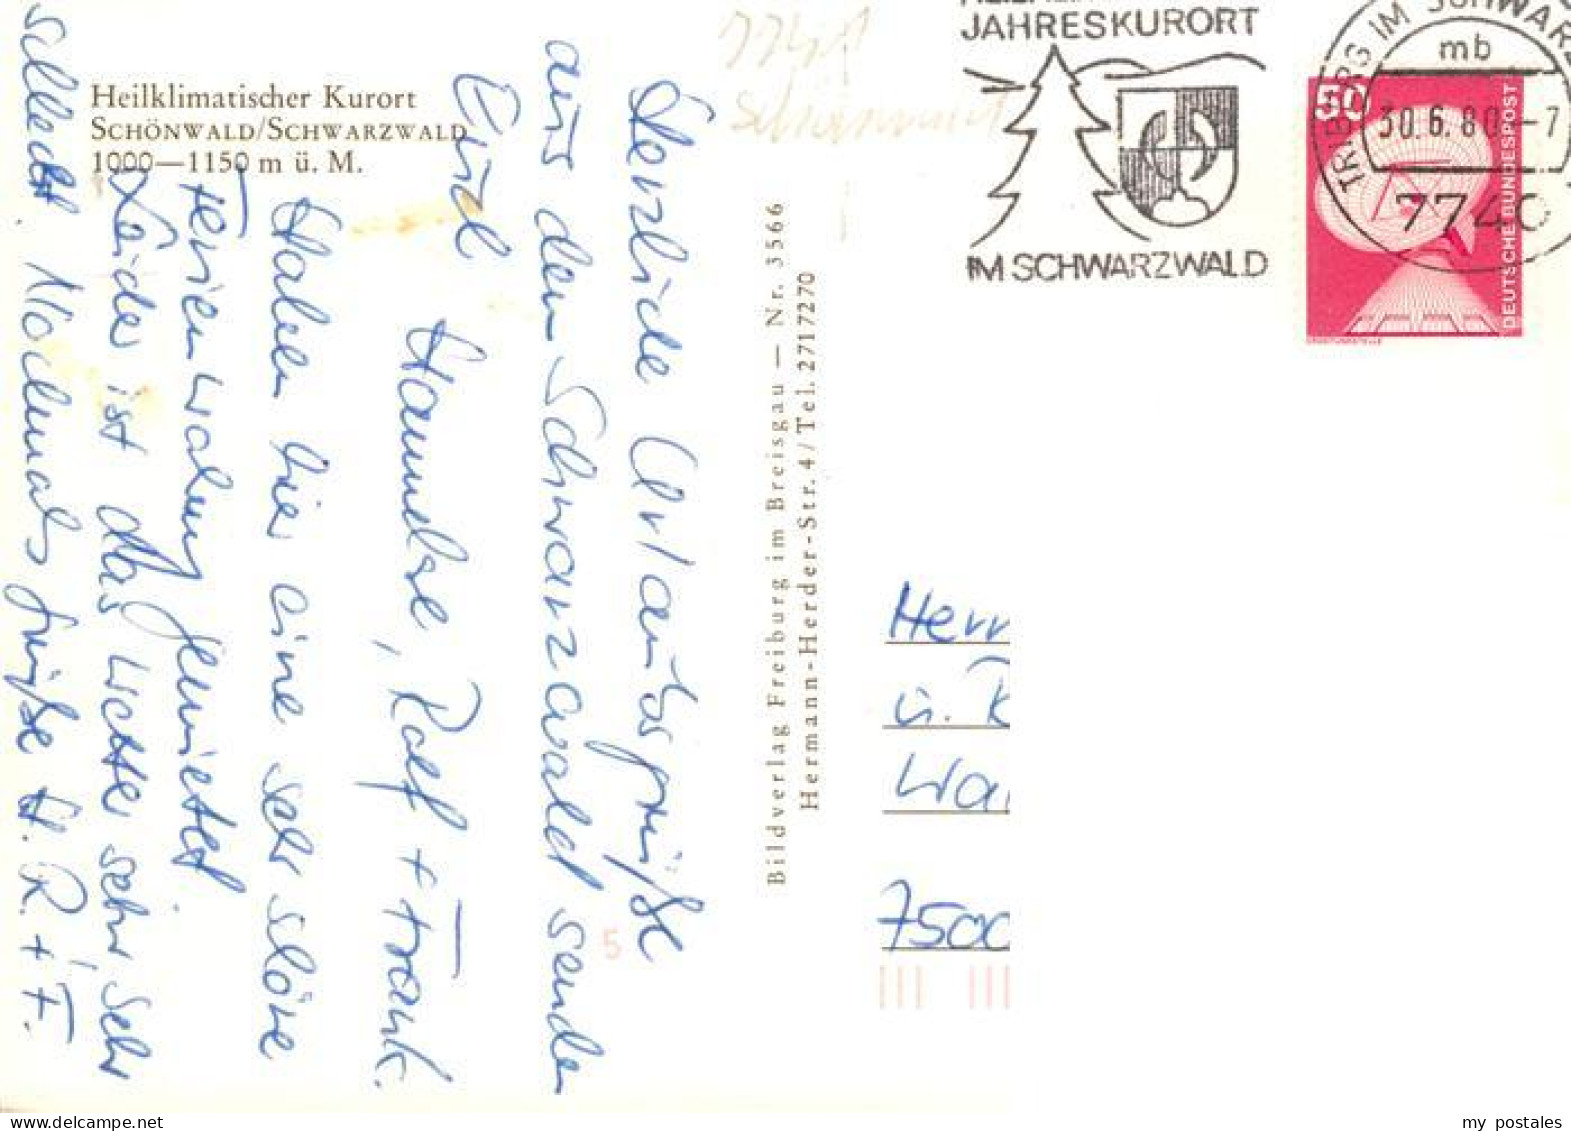 Heilklimatischer Kurort
SCHÖNWALD/SCHWARZWALD
1000—1150 m ü. M.
Herzliche Urlaubsgrüße
aus dem Schwarzwald senden
Euch
Hannelore, Rolf + Frank.
Haben hier eine sehr schöne
Ferienwohnung gemietet.
Leider ist das Wetter sehr sehr
schlecht. Nochmals Grüße H. R. + F.
Bildverlag Freiburg im Breisgau — Nr. 3566
Hermann-Herder-Str. 4/Tel. 2717270
JAHRESKURORT
IM SCHWARZWALD
TRIBERG IM SCHWARZ
mb
30.6.80-7
7740
50
DEUTSCHE BUNDESPOST
5
Herrn
u.
7500
my postales